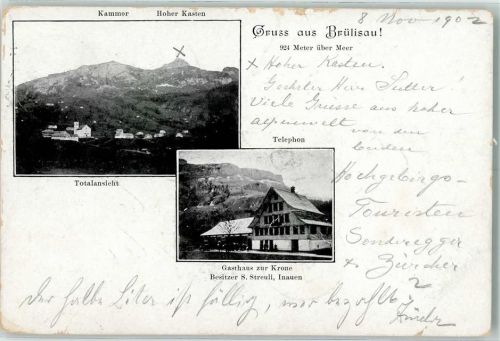 Kammor Hoher Kasten
Gruss aus Brülisau!
924 Meter über Meer
8 Nov 1902
x Hoher Kasten.
Geehrter Herr Sutter!
Viele Grüsse aus hoher
alpenwelt von den
beiden
Hochgebirgs-
Touristen
Sonderegger
x Zürcher
Totalansicht
Telephon
Gasthaus zur Krone
Besitzer S. Streuli, Inauen
Der halbe Liter ist fällig, wer bezahlt?